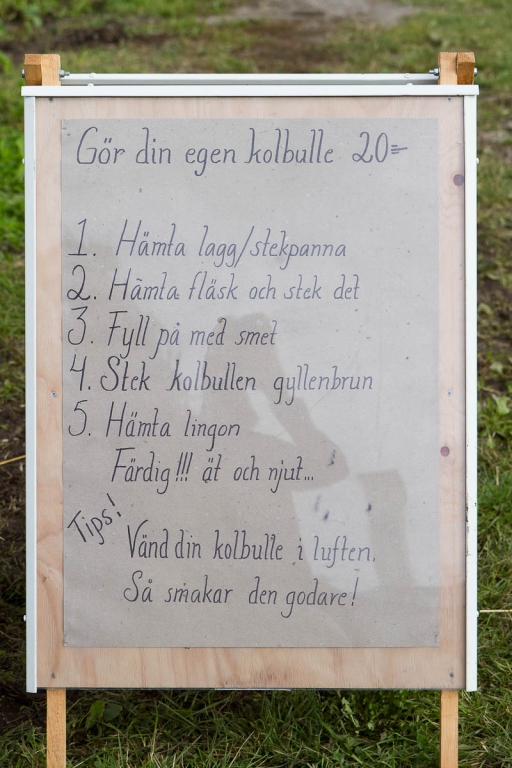 Gör din egen kolbulle 20=
1. Hämta lagg/stekpanna
2. Hämta fläsk och stek det
3. Fyll på med smet
4. Stek kolbullen gyllenbrun
5. Hämta lingon
Färdig!!! ät och njut...
Tips!
Vänd din kolbulle i luften.
Så smakar den godare!